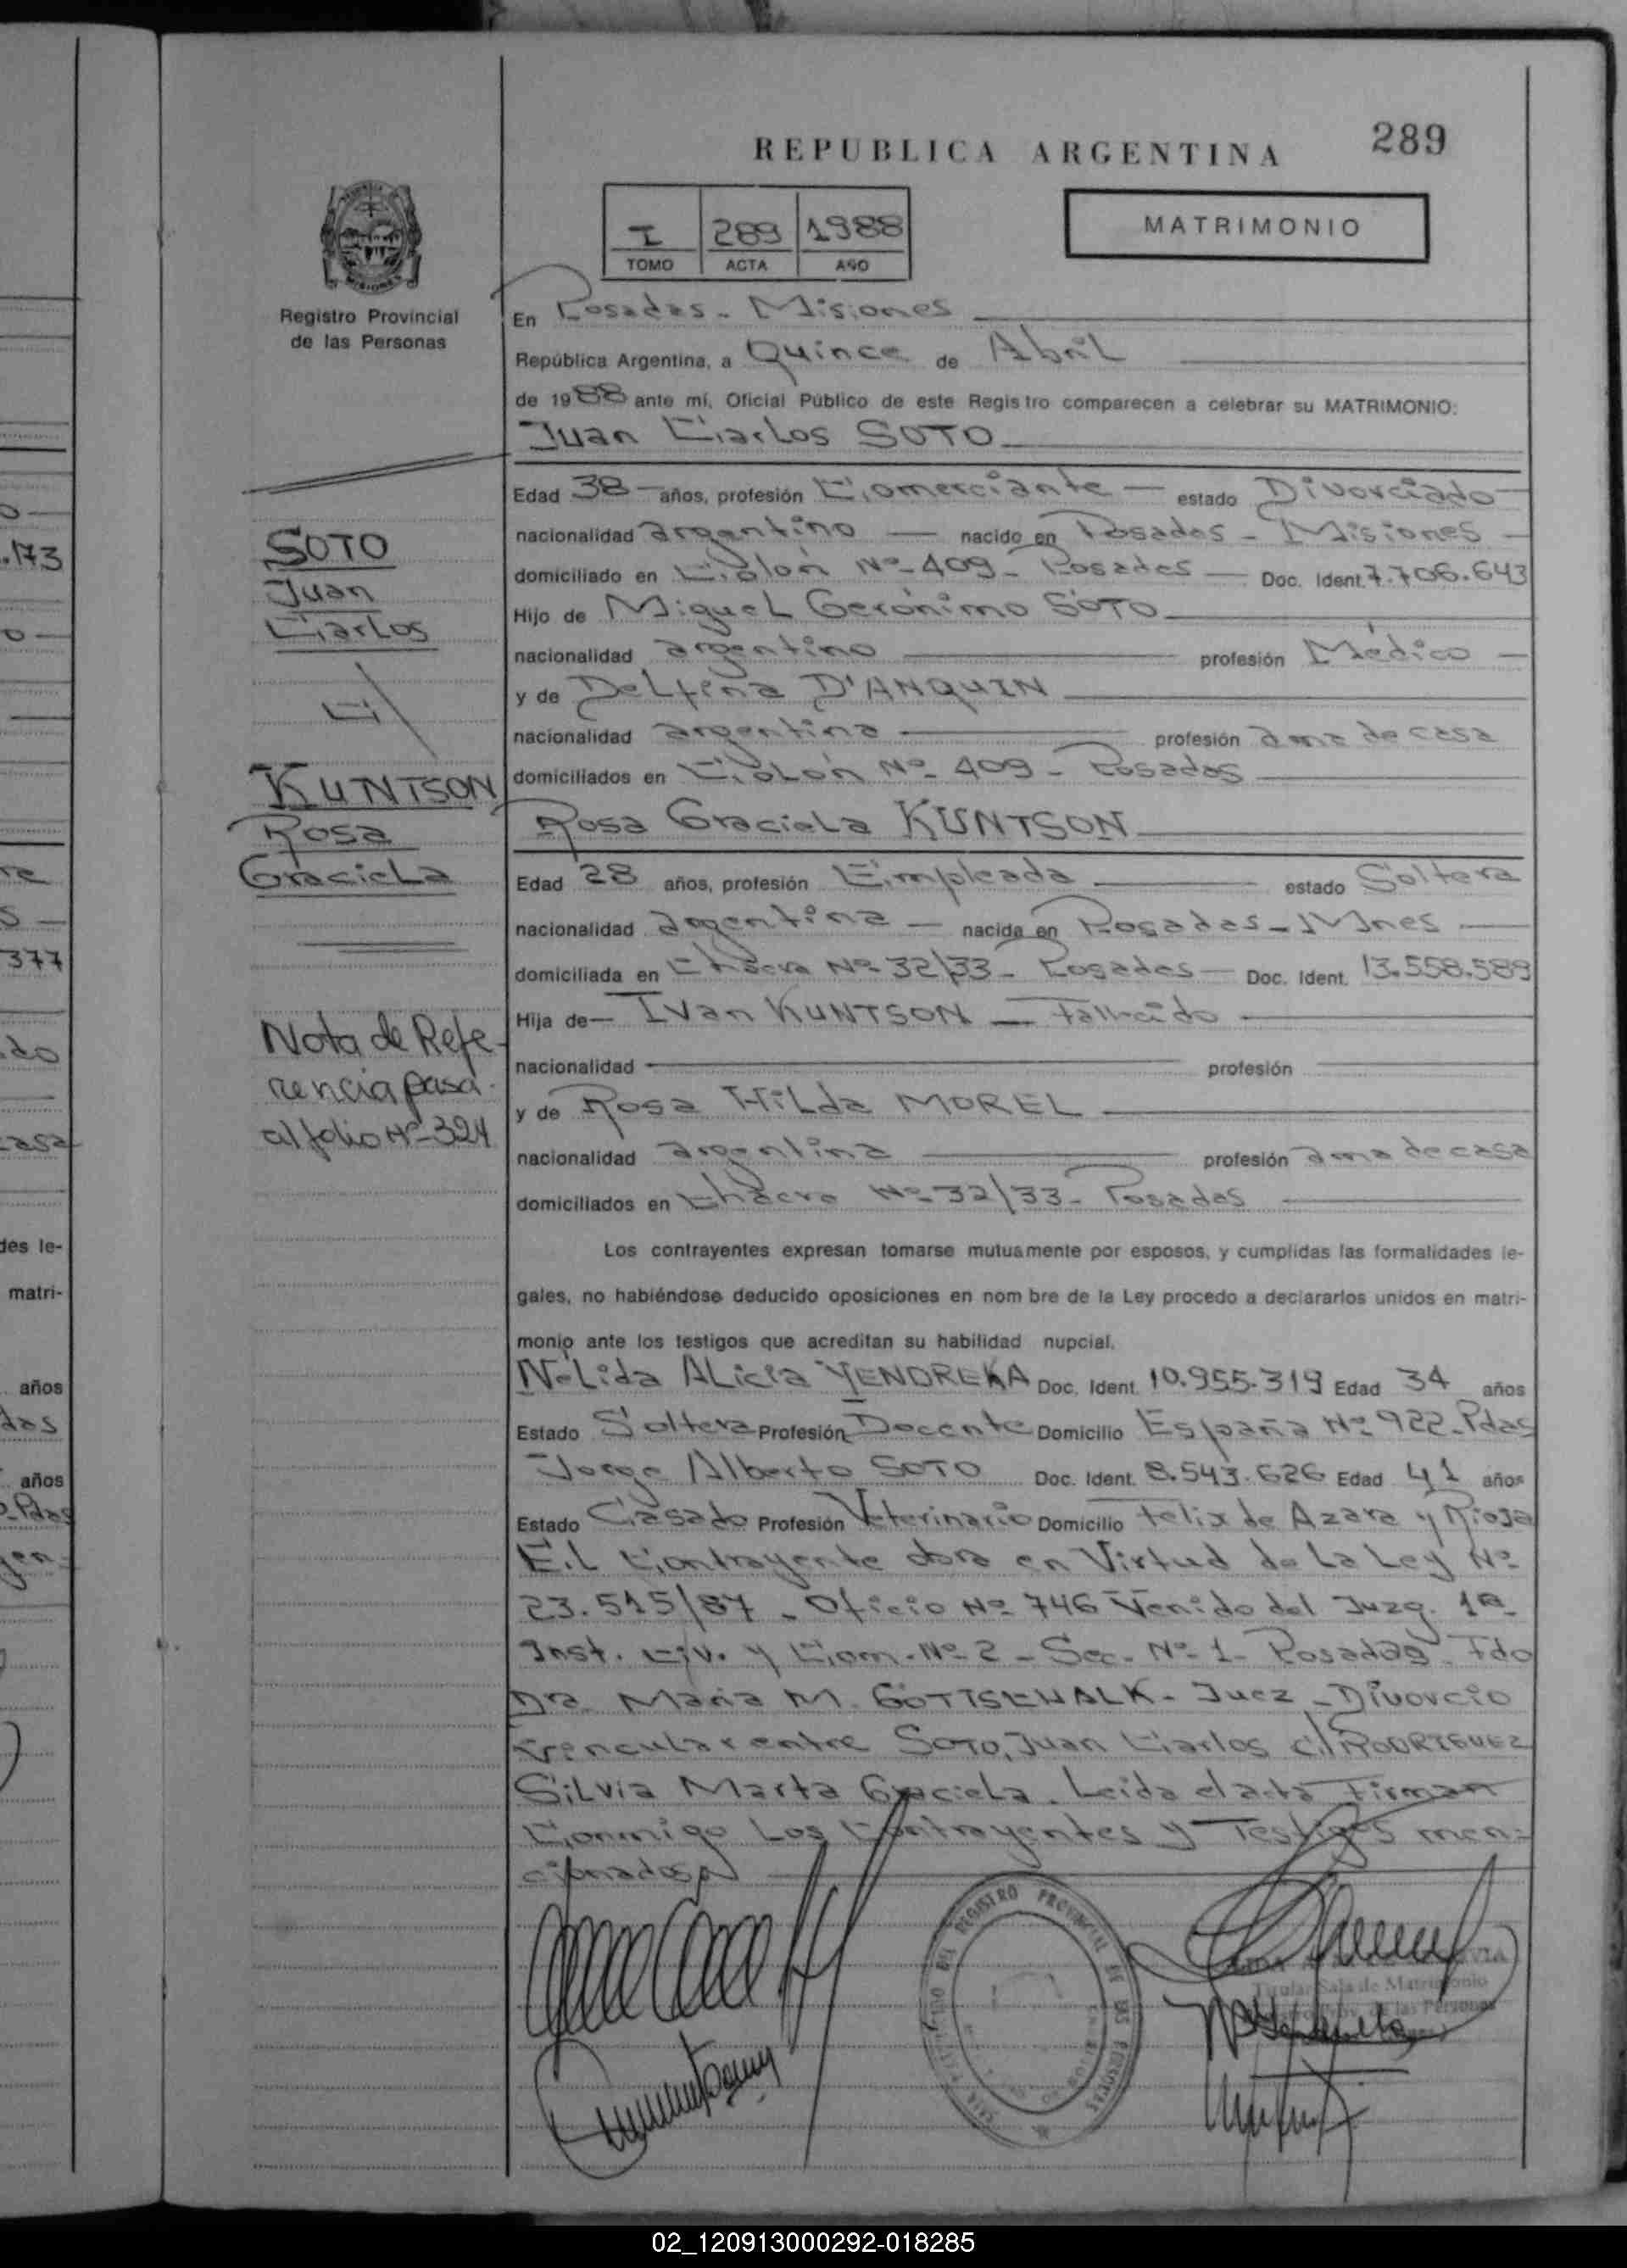 289
REPUBLICA ARGENTINA
MATRIMONIO
I 289 1988
TOMO ACTA AÑO
Registro Provincial
de las Personas
En Posadas - Misiones
República Argentina, a Quince de Abril
de 1988 ante mí, Oficial Público de este Registro comparecen a celebrar su MATRIMONIO:
Juan Carlos SOTO
Edad 38 años, profesión Comerciante estado Divorciado
nacionalidad argentino nacido en Posadas - Misiones
domiciliado en Colón Nº 409 - Posadas Doc. Ident. 7.706.643
Hijo de Miguel Gerónimo SOTO
nacionalidad argentino profesión Médico
y de Delfina D'ANQUIN
nacionalidad argentina profesión ama de casa
domiciliados en Colón Nº 409 - Posadas
Rosa Graciela KUNTSON
Edad 28 años, profesión Empleada estado Soltera
nacionalidad argentina nacida en Posadas - Mnes
domiciliada en Chacra Nº 32/33 - Posadas Doc. Ident. 13.558.589
Hija de Ivan KUNTSON - Fallecido
nacionalidad profesión
y de Rosa Hilda MOREL
nacionalidad argentina profesión ama de casa
domiciliados en Chacra Nº 32/33 - Posadas
Los contrayentes expresan tomarse mutuamente por esposos, y cumplidas las formalidades le-
gales, no habiéndose deducido oposiciones en nom bre de la Ley procedo a declararlos unidos en matri-
monio ante los testigos que acreditan su habilidad nupcial.
Nélida Alicia YENDREKA Doc. Ident. 10.955.319 Edad 34 años
Estado Soltera Profesión Docente Domicilio España Nº 922 - Pdas
Jorge Alberto SOTO Doc. Ident. 8.543.626 Edad 41 años
Estado Casado Profesión Veterinario Domicilio Felix de Azara y Rioja
El Contrayente obra en Virtud de La Ley Nº
23.515/87 - Oficio Nº 746 Venido del Juzg. 1ª
Inst. Civ. y Com. Nº 2 - Sec. Nº 1 - Posadas - Fdo
Dra. Maria M. GOTTSCHALK - Juez - Divorcio
Vincular entre SOTO, Juan Carlos c/ RODRIGUEZ
Silvia Marta Graciela. Leida el acta Firman
Conmigo Los Contrayentes y Testigos men-
cionados
SOTO
Juan
Carlos
C/
KUNTSON
Rosa
Graciela
Nota de Refe-
rencia pasa
al folio Nº 324
REGISTRO PROVINCIAL DE LAS PERSONAS
Titular Sala de Matrimonio
Prov. de las Personas
.173
377
casa
des le-
matri-
años
das
años
Pdas
02_120913000292-018285